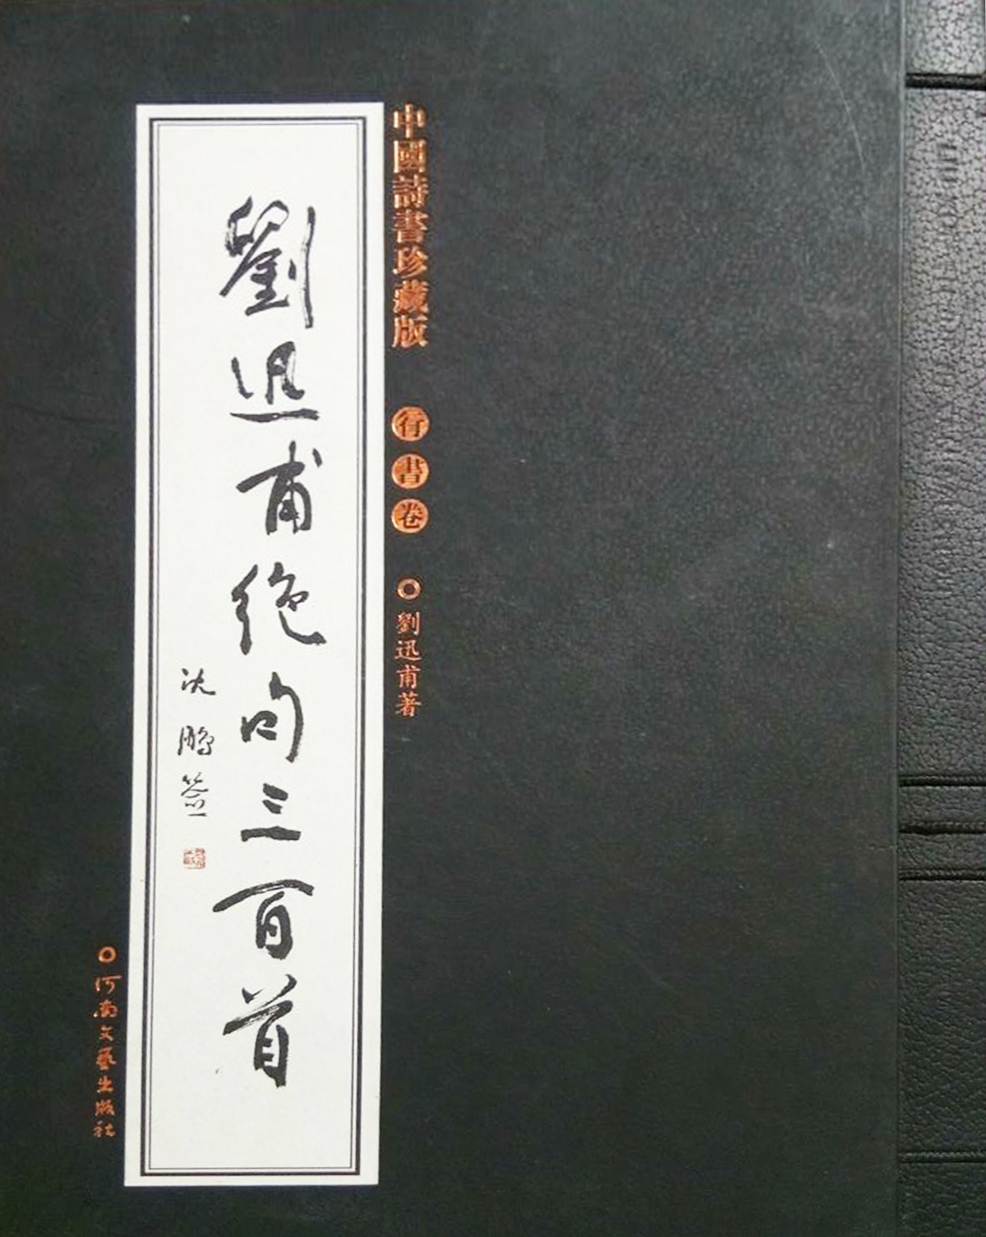 中國詩書珍藏版 行書卷 劉迅甫著
劉迅甫绝句三百首
沈鵬签
河南文藝出版社